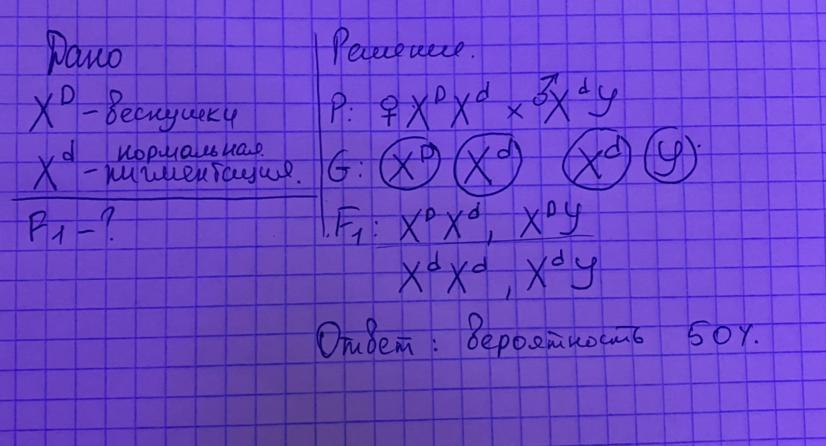 Дано
X^D – веснушки
X^d – нормальная пигментация.
F1 – ?
Решение.
P: ♀ X^D X^d × ♂ X^d Y
G: X^D X^d X^d Y
F1: X^D X^d, X^D Y
X^d X^d, X^d Y
Ответ: вероятность 50%.